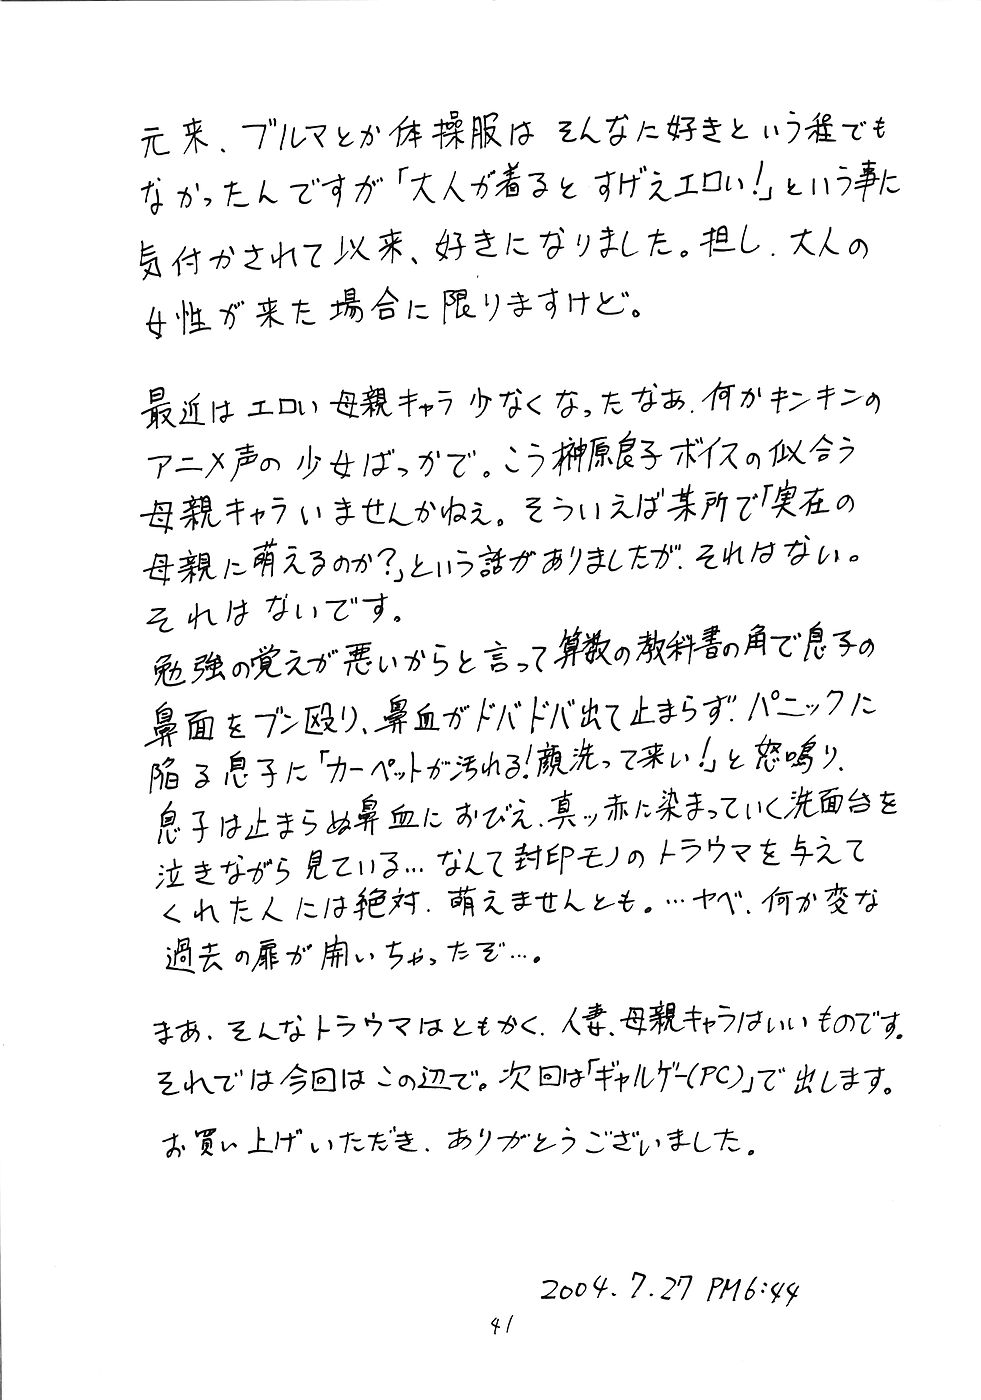 元来、ブルマとか体操服は そんなに好きという程でも
なかったんですが「大人が着ると すげえエロい!」という事に
気付かされて以来、好きになりました。担し、大人の
女性が来た場合に限りますけど。
最近はエロい母親キャラ少なくなったなあ、何かキンキンの
アニメ声の少女ばっかで。こう榊原良子ボイスの似合う
母親キャラいませんかねえ。そういえば某所で「実在の
母親に萌えるのか?」という話がありましたが、それはない。
それはないです。
勉強の覚えが悪いからと言って算数の教科書の角で息子の
鼻面をブン殴り、鼻血がドバドバ出て止まらず、パニックに
陥る息子に「カーペットが汚れる!顔洗って来い!」と怒鳴り、
息子は止まらぬ鼻血におびえ、真ッ赤に染まっていく洗面台を
泣きながら見ている…なんて封印モノのトラウマを与えて
くれた人には絶対、萌えませんとも。…ヤベ、何か変な
過去の扉が開いちゃったぞ…。
まあ、そんなトラウマはともかく、人妻、母親キャラはいいものです。
それでは今回はこの辺で。次回は「ギャルゲー(PC)」で出します。
お買い上げいただき、ありがとうございました。
2004.7.27 PM6:44
41